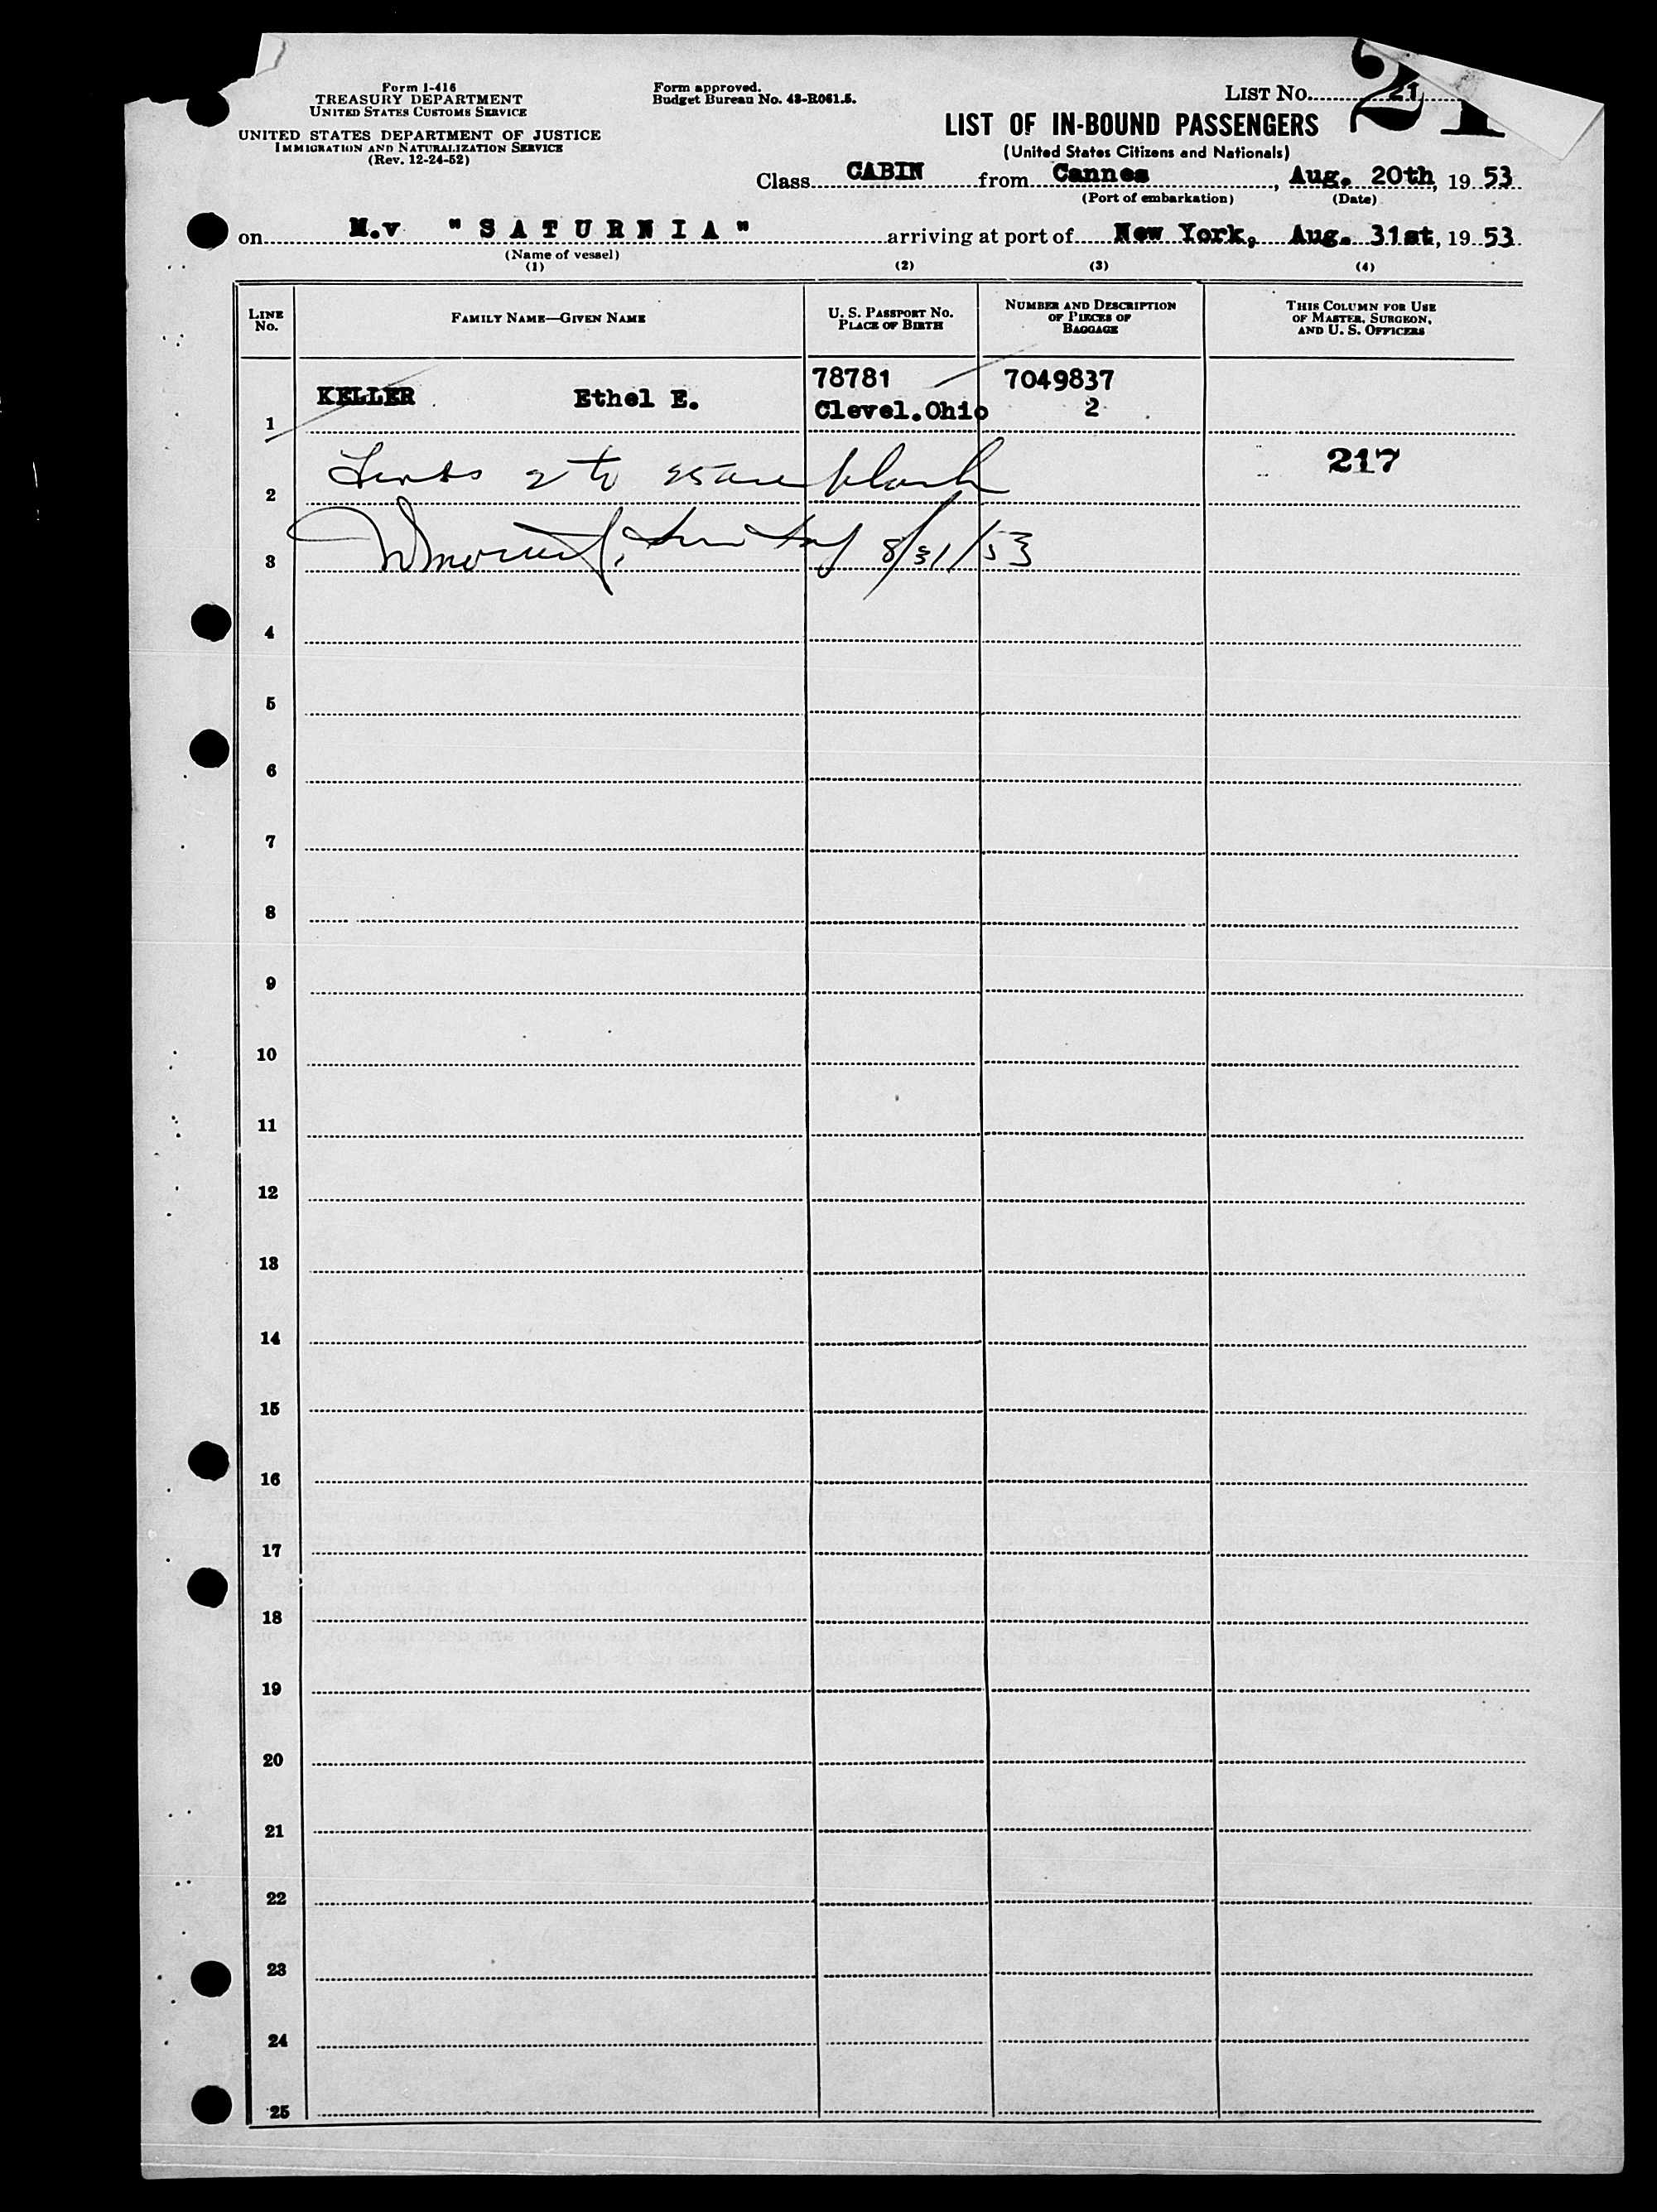 Form I-416
TREASURY DEPARTMENT
UNITED STATES CUSTOMS SERVICE
UNITED STATES DEPARTMENT OF JUSTICE
IMMIGRATION AND NATURALIZATION SERVICE
(Rev. 12-24-52)
Form approved.
Budget Bureau No. 43-R061.5.
LIST No. 21
21
LIST OF IN-BOUND PASSENGERS
(United States Citizens and Nationals)
Class CABIN from Cannes, Aug. 20th, 1953
(Port of embarkation) (Date)
on M.v "SATURNIA" arriving at port of New York, Aug. 31st, 1953
(Name of vessel)
(1) (2) (3) (4)
LINE No. FAMILY NAME—GIVEN NAME U. S. PASSPORT No. PLACE OF BIRTH NUMBER AND DESCRIPTION OF PIECES OF BAGGAGE THIS COLUMN FOR USE OF MASTER, SURGEON, AND U. S. OFFICERS
78781 7049837
1 KELLER Ethel E. Clevel.Ohio 2
2 Lines 2 to 25 are blank 217
3 8/31/53
4
5
6
7
8
9
10
11
12
13
14
15
16
17
18
19
20
21
22
23
24
25